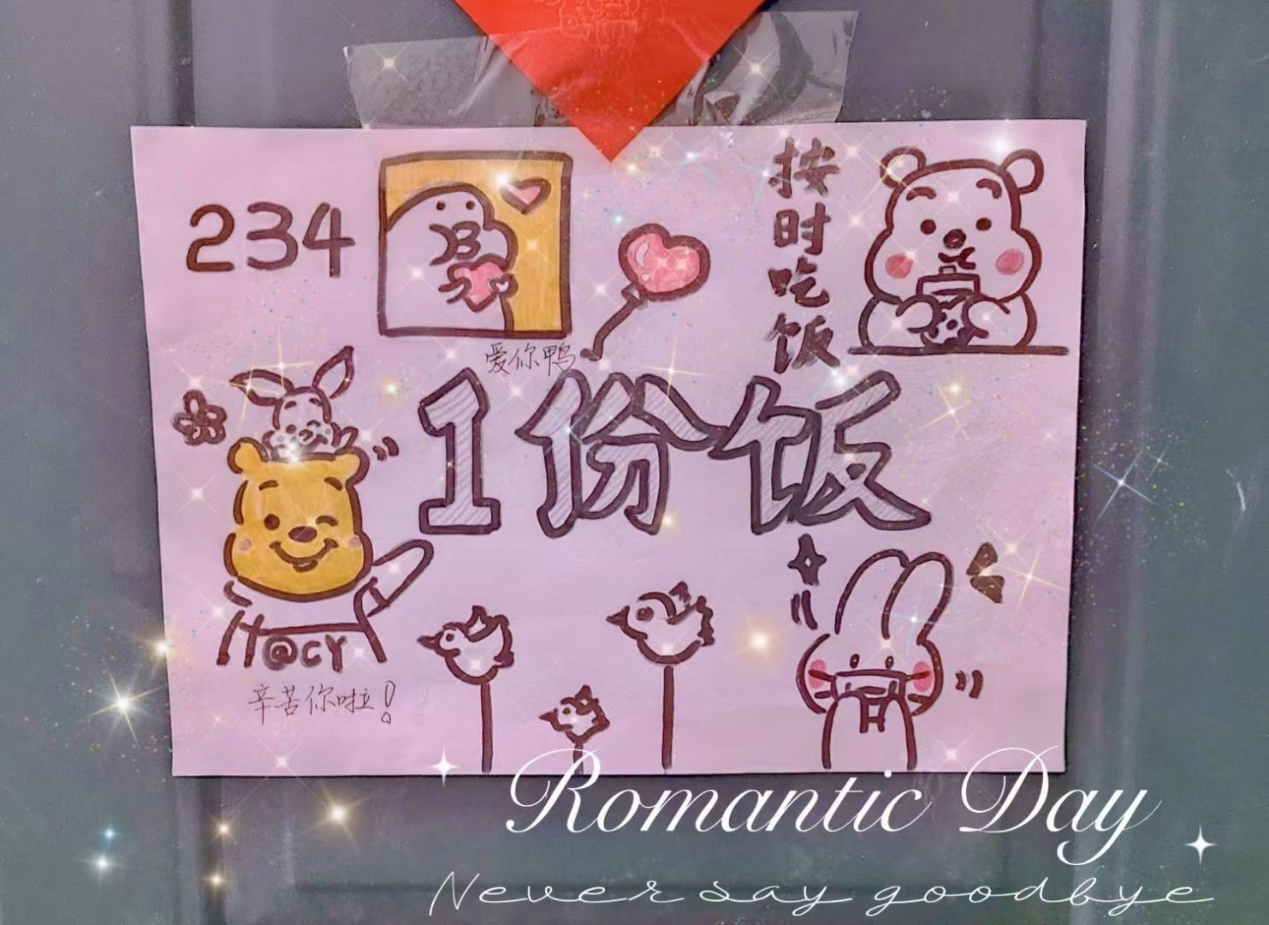 234
按时吃饭
爱你鸭
1份饭
@CY
辛苦你啦!
Romantic Day
Never say goodbye